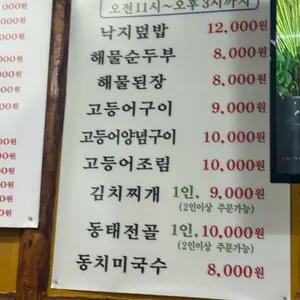 오전11시~오후3시까지
낙지덮밥 12,000원
해물순두부 8,000원
해물된장 8,000원
고등어구이 9,000원
고등어양념구이 10,000원
고등어조림 10,000원
김치찌개 1인, 9,000원
(2인이상 주문가능)
동태전골 1인, 10,000원
(2인이상 주문가능)
동치미국수 8,000원